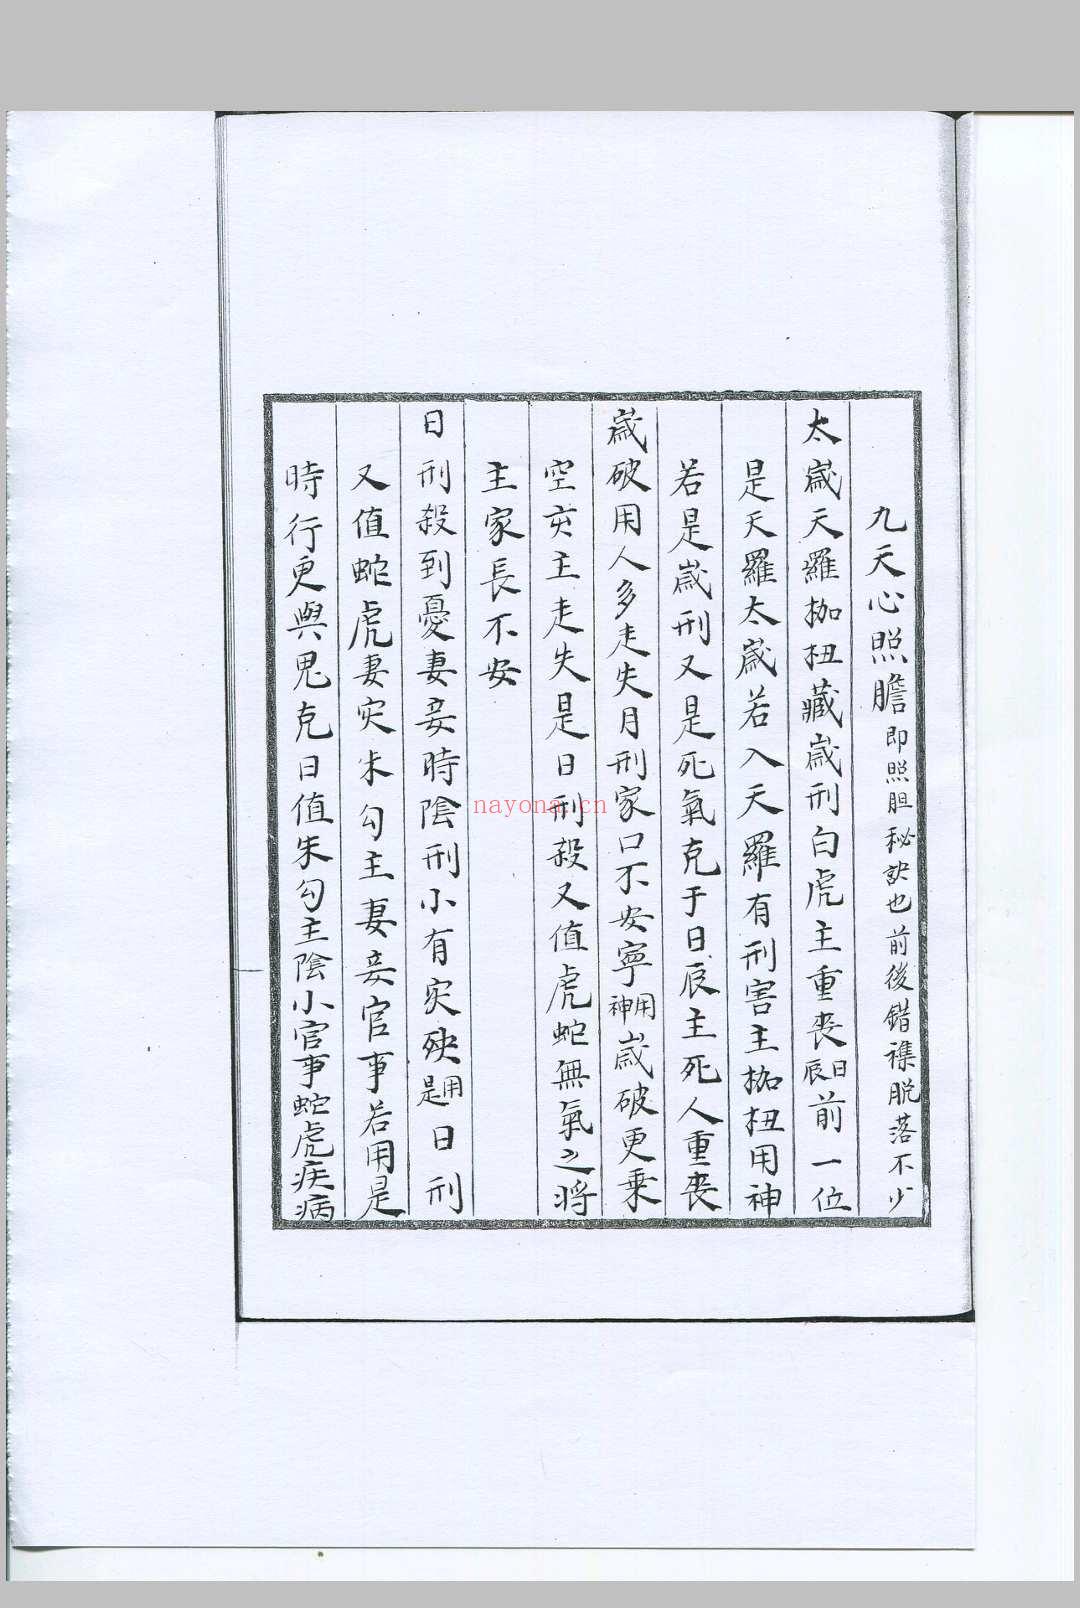 九天心照膽即照胆秘訣也前後錯襍脱落不少
太歲天羅枷杻藏歲刑白虎主重喪日辰前一位
是天羅太歲若入天羅有刑害主枷杻用神
若是歲刑又是死氣克于日辰主死人重喪
歲破用人多走失月刑家口不安寧用神歲破更乗
空亥主走失是日刑殺又值虎蛇無氣之將
主家長不安
日刑殺到憂妻妾時陰刑小有灾殃用是日刑
又值蛇虎妻灾朱勾主妻妾官事若用是
時行更與鬼克日值朱勾主陰小官事蛇虎疾病
nayona.cn